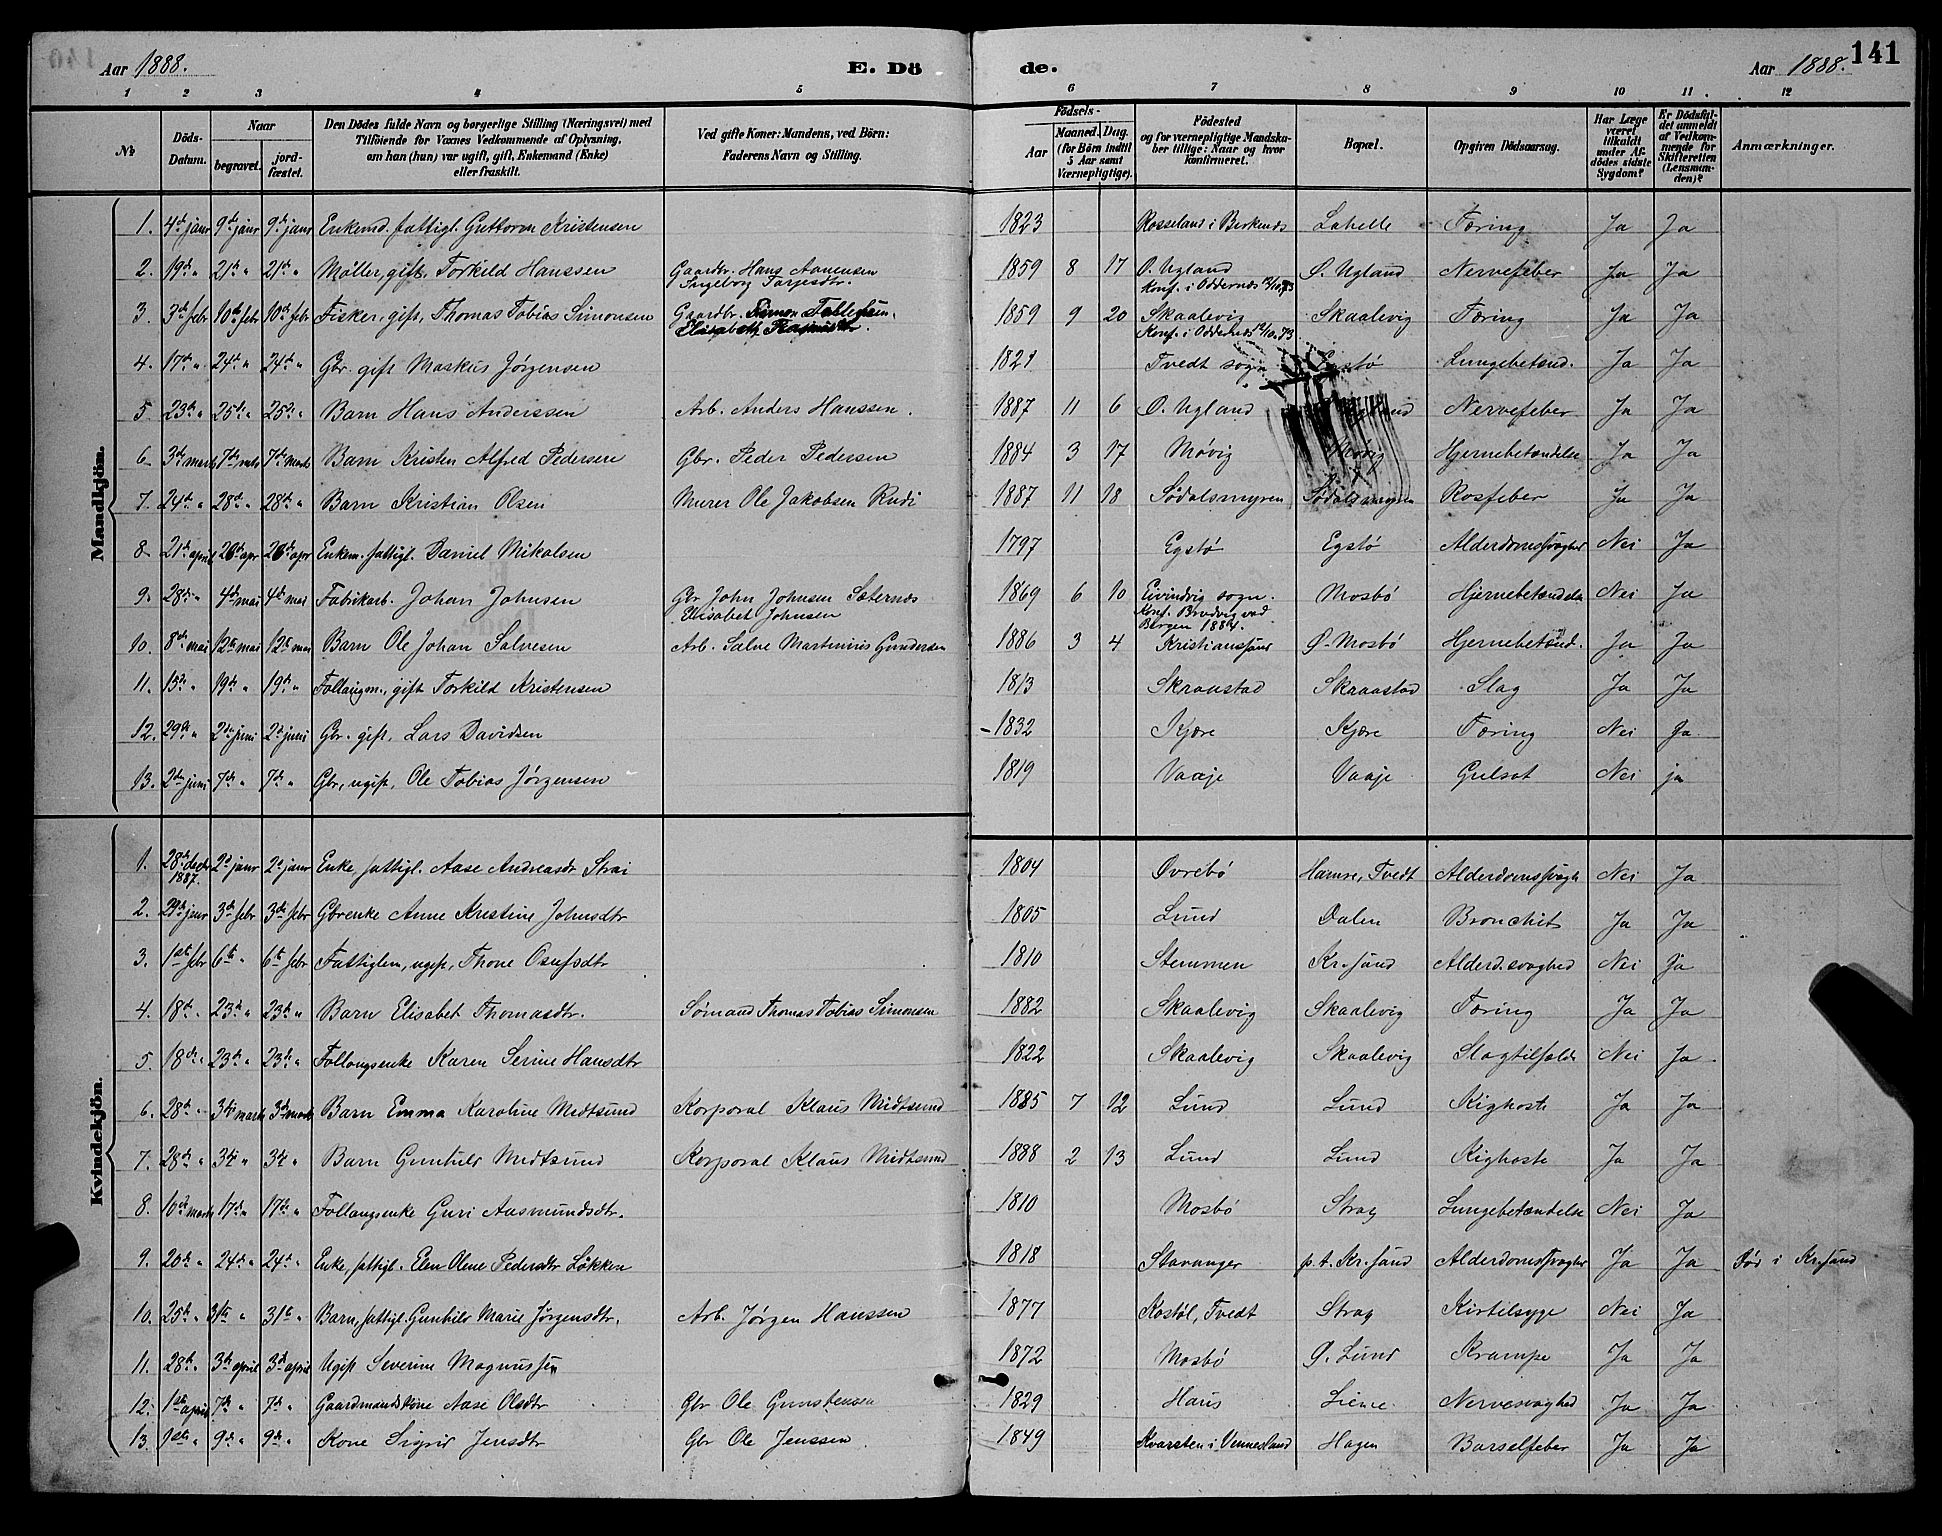 Aar 1888. E. Dö de. Aar 1888. 141
1 2 3 4 5 6 7 8 9 10 11 12
No Döds-Datum. Naar begravet. jordfæstet. Den Dödes fulde Navn og borgerlige Stilling (Næringsvei) med Tilföiende for Voxnes Vedkommende af Oplysning, om han (hun) var ugift, gift, Enkemand (Enke) eller fraskilt. Ved gifte Koner: Mandens, ved Börn: Faderens Navn og Stilling. Födsels- Aar Maaned. Dag. (for Börn indtil 5 Aar samt Værnepligtige). Födested og for værnepligtige Mandskaber tillige: Naar og hvor konfirmeret. Bopæl. Opgiven Dödsaarsag. Har Læge været tilkaldt under Afdödes sidste Sygdom? Er Dödsfaldet anmeldt af Vedkommende for Skifteretten (Lensmanden)? Anmærkninger.
Mandkjön.
1. 4de janr 9de janr 9de janr Enkemd. fattigl. Guttorm Kristensen 1823 Rosseland i Birkenes Lahelle Tæring Ja Ja
2. 19de " 21de " 21de " Møller, gift, Torkild Hanssen Gaardbr. Hans Aanensen 1859 8 17 Ø. Ugland Ø. Ugland Nervefeber Ja Ja
Ingeborg Tarjesdtr. Konf. i Oddernes 12/10.73
3. 3de febr 10de febr 10de febr Fisker, gift, Thomas Tobias Simonsen Gaardbr. Simon Tallegsen. 1859 9 20 Skaalevig Skaalevig Tæring Ja Ja
Elisabeth Rasmusdtr. Konf. i Oddernes 12/10.73
4. 17de " 24de " 24de " Gbr. gift Markus Jørgensen 1821 Tvedt sogn Egstø Lungebetænd. Ja Ja
5. 23de " 25de " 25de " Barn Hans Anderssen Arb. Anders Hanssen. 1887 11 6 Ø. Ugland Ugland Nervefeber Ja Ja
6. 3de marts 7de mts 7de marts Barn Kristen Alfred Pedersen Gbr. Peder Pedersen 1884 3 17 Møvig Møvig Hjernebetændelse Ja Ja
7. 24de " 28de " 28de " Barn Kristian Olsen Murer Ole Jakobsen Rudi 1887 11 18 Sødalsmyren Sødalsmyren Rosfeber Ja Ja
8. 21de april 26de apr 26de apr Enkem. fattigl. Daniel Mikalsen 1797 Egstø Egstø Alderdomssvaghed Nei Ja
9. 28de " 4de mai 4de mai Fabrikarb. Johan Johnsen Gbr John Johnsen Sæternes 1869 6 10 Eivindvig sogn. Mosbö Hjernebetændelse Nei Ja
Elisabet Johnsen Konf. Brudvig ved Bergen 1884.
10. 8de mai 12te mai 12te mai Barn Ole Johan Salvesen Arb. Salve Martinius Gundersen 1886 3 4 Kristianssand Ø. Mosbö Hjernebetænd. Ja Ja
11. 15de " 19de " 19de " Follaugm., gift Torkild Kristensen 1813 Skraastad Skraastad Slag Ja Ja
12. 29de " 2den juni 2de juni Gbr. gift, Lars Davidsen 1832 Kjære Kjære Tæring Nei Ja
13. 2den juni 7de " 7de " Gbr, ugift, Ole Tobias Jørgensen 1819 Vaaje Vaaje Gulsot Nei ja
Kvindekjön.
1. 28de decbr 1887. 2de janr 2de janr Enke, fattigl. Aase Andreasdtr Strai 1804 Øvrebö Hamre, Tvedt Alderdomssvagh Nei Ja
2. 29de janr 3de febr 3de febr Gbrenke Anne Kristine Johnsdtr 1805 Lund Dalen Bronchit Ja Ja
3. 1ste febr 6te " 6te febr Fattiglem, ugift, Thone Osufsdtr 1810 Stemmen Kr.sand Alderd.svaghed Nei Ja
4. 18de " 23de " 23de " Barn Elisabet Thomasdtr. Sømand Thomas Tobias Simonsen 1882 Skaalevig Skaalevig Tæring Ja Ja
5. 18de " 23de " 23de " Follaugsenke Karen Serine Hansdtr 1822 Skaalevig Skaalevig Slagtilfælde Nei Ja
6. 28de " 3die marts 3de marts Barn Emma Karoline Midtsund Korporal Klaus Midtsund 1885 7 12 Lund Lund Kighoste Ja Ja
7. 28de " 3die " 3die " Barn Gunhild Midtsund Korporal Klaus Midtsund 1888 2 13 Lund Lund Kighoste Ja Ja
8. 10de marts 17de " 17de " Follaugsenke Guri Aasmundsdtr. 1810 Mosbö Stray Lungebetændelse Nei Ja
9. 20de " 24de " 24de " Enke, fattigl. Elen Olene Pedersdtr Løkken 1818 Stavanger p.t. Kr.sand Alderdomssvaghed Ja Ja Død i Kr.sand
10. 25de " 31te " 31te " Barn, fattigl. Gunhild Marie Jørgensdtr. Arb. Jørgen Hanssen 1877 Kostøl, Tvedt Stray Kirtelsyge Nei Ja
11. 28de " 3die april 3de april Ugift Severine Magnussen 1872 Mosbö Ø. Lund Krampe Ja Ja
12. 1ste april 7de " 7de " Gaardmandskone Aase Olsdtr Gbr Ole Gunstensen 1829 Haus Liene Nervesvaghed Ja Ja
13. 1ste " 9de " 9de " Kone Sigrid Jensdtr Gbr Ole Jenssen. 1849 Kvarsten i Vennesland Hagen Barselfeber Ja Ja